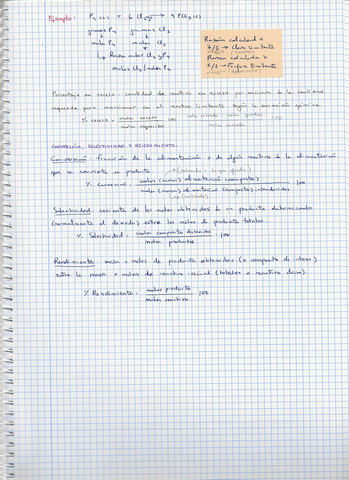 Ejemplo: P4 (s) + 6 Cl2(g) → 4 PCl3(l)
gramos P4 gramos Cl2
moles P4 moles Cl2
Razón moles Cl2 y P4
moles Cl2/moles P4
Razón calculada <
6/1 → Cloro limitante
Razón calculada >
6/1 → Fósforo limitante
Porcentaje en exceso: Cantidad de reactivo en exceso por encima de la cantidad
requerida para reaccionar con el reactivo limitante según la ecuación química
% exceso = moles exceso / moles requeridos · 100
CONVERSIÓN, SELECTIVIDAD Y RENDIMIENTO.
Conversión: fracción de la alimentación o de algún reactivo de la alimentación
que se convierte en producto
% Conversión: moles (masa) alimentación (compuesto) / moles (masa) alimentación (compuesto) introducidos · 100
Selectividad: cociente de los moles obtenidos de un producto determinado
(normalmente el deseado) entre los moles de producto totales
% Selectividad: moles compuesto deseado / moles productos · 100
Rendimiento: masa o moles de producto obtenidos (o compuesto de interés)
entre la masa o moles de reactivo inicial (totales o reactivo clave)
% Rendimiento: moles producto / moles reactivo · 100